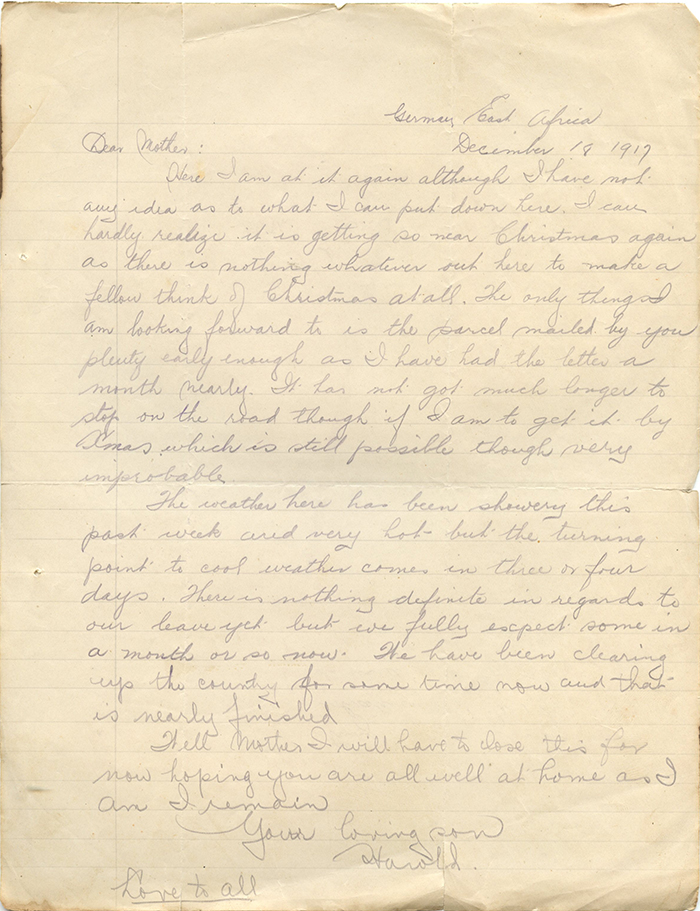 German East Africa
December 18 1917
Dear Mother:
Here I am at it again although I have not
any idea as to what I can put down here. I can
hardly realize it is getting so near Christmas again
as there is nothing whatever out here to make a
fellow think of Christmas at all. The only things I
am looking forward to is the parcel mailed by you
plenty early enough as I have had the letter a
month nearly. It has not got much longer to
stop on the road though if I am to get it by
Xmas which is still possible though very
improbable.
The weather here has been showery this
past week and very hot but the turning
point to cool weather comes in three or four
days. There is nothing definite in regards to
our leave yet but we fully expect some in
a month or so now. We have been clearing
up the country for some time now and that
is nearly finished
Well Mother I will have to close this for
now hoping you are all well at home as I
am I remain
Your loving son
Harold.
Love to all